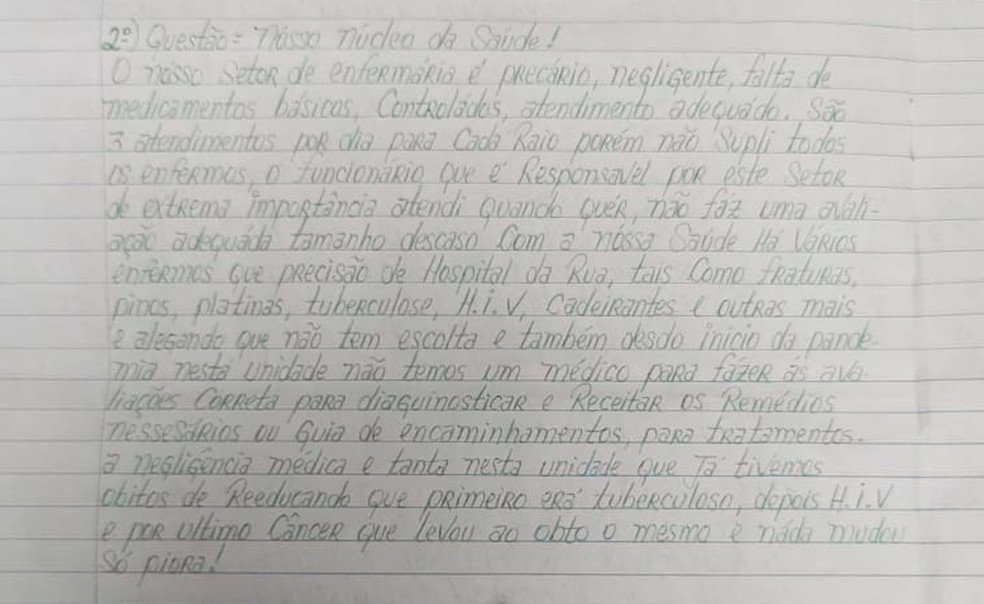 2º) Questão = Nosso núcleo da Saúde!
O nosso Setor de enfermária é precário, negligente, falta de
medicamentos básicos, Controládos, atendimento adequádo. São
3 atendimentos por dia para Cada Raio porém não Supli todos
os enfermos, o funcionário que é Responsavel por este Setor
de extrema importância atendi quando quér, não fáz uma avali-
ação adequáda tamanho descaso Com a nossa Saúde Há Vários
enfermos que precisão de Hospital da Rua, tais Como fraturas,
pinos, platinas, tuberculose, H.i.V, Cadeirantes e outras mais
e alegando que não tem escolta e também desdo inicio da pande-
mia nesta unidade não temos um médico para fázer ás ava-
liações Correta para diaguinosticar e Receitar os Remédios
nessesários ou Guia de encaminhamentos, para tratamentos.
a negligência médica e tanta nesta unidade que Já tivemos
obitos de Reeducando que primeiro erá tuberculoso, depois H.i.V
e por ultimo Câncer que levou ao obto o mesmo e náda mudou
Só piora!